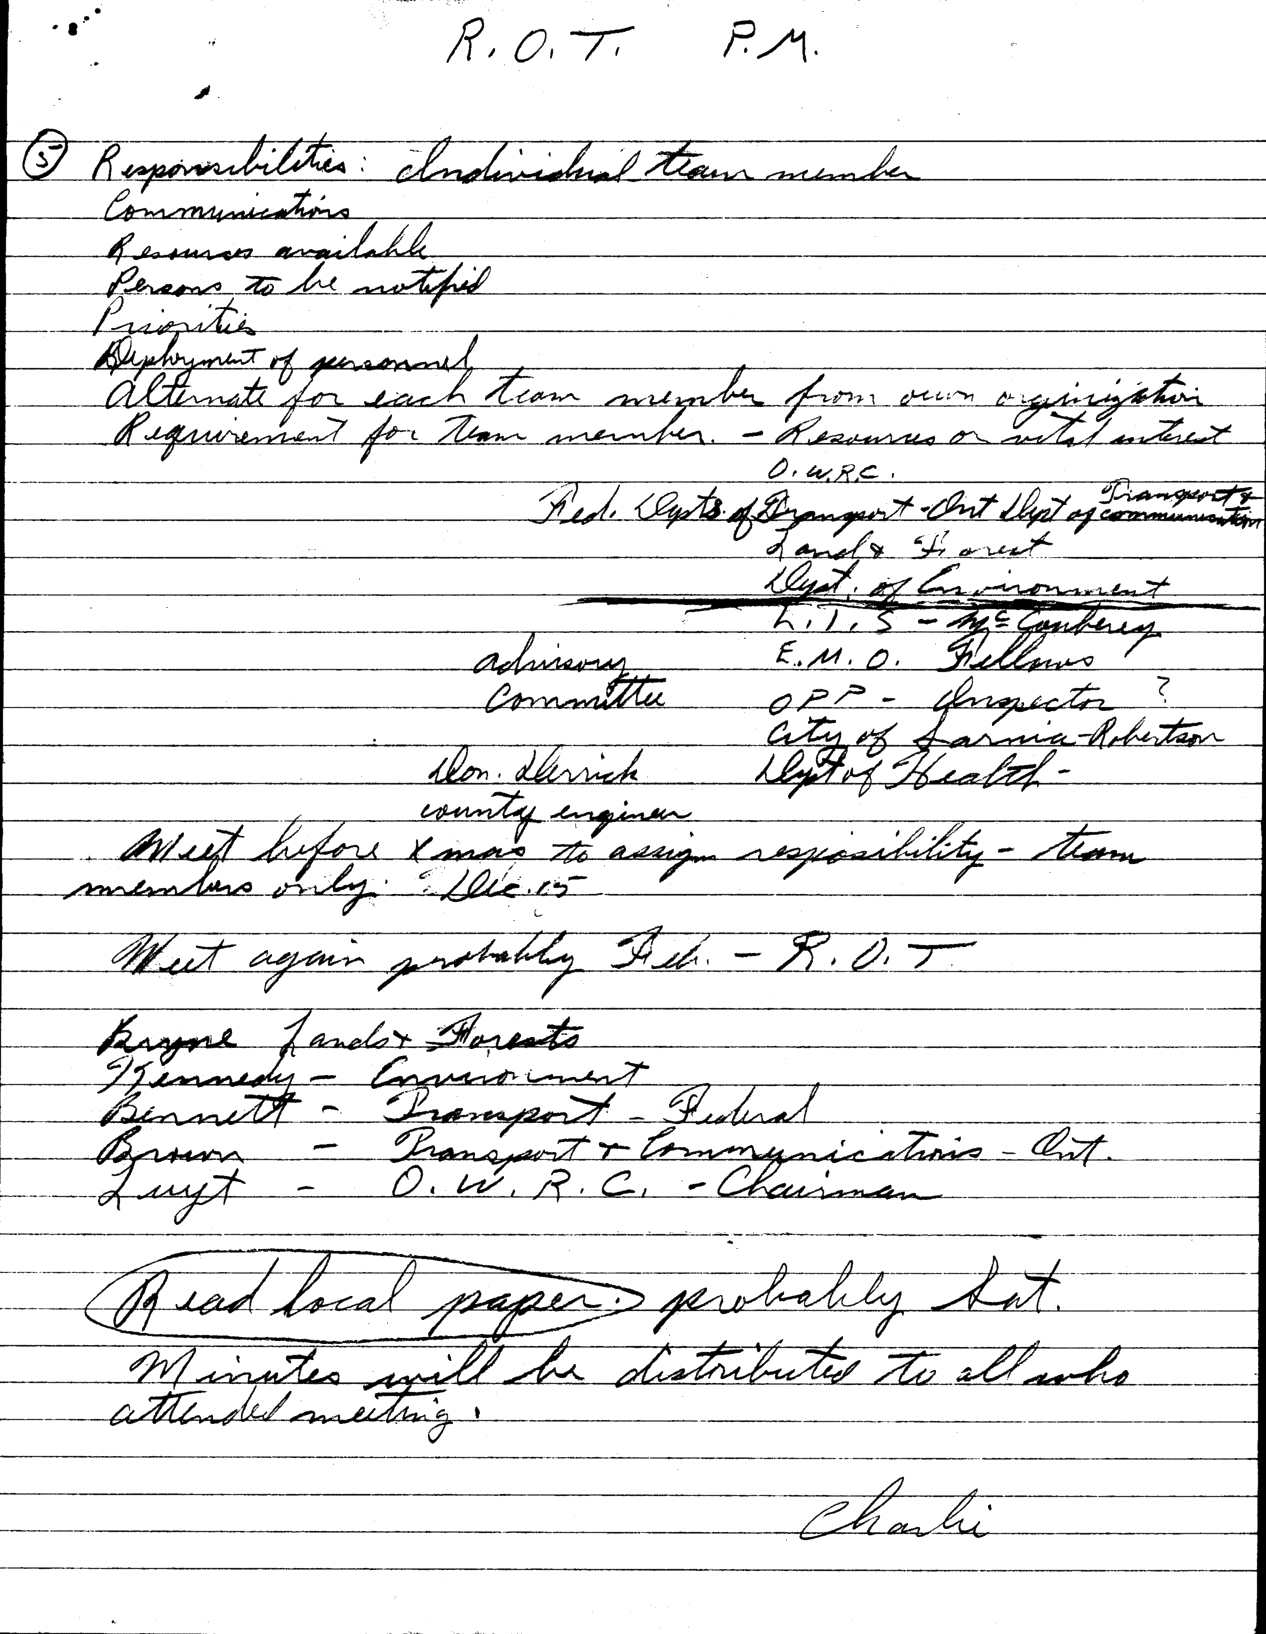 R.O.T. P.M.
5 Responsibilities: Individual team member
Communications
Resources available
Persons to be notified
Priorities
Deployment of personnel
Alternate for each team member from own orginization
Requirement for team member. - Resources or vital interest
O.W.R.C.
Fed. Depts of Transport - Ont Dept of Transport & communication
Land & Forest
Dept. of Environment
L.I.S - McConberey
advisory E.M.O. Fellows
Committee OPP - Inspector ?
City of Sarnia - Robertson
Don. Derrick Dept of Health -
county engineer
Meet before Xmas to assign resposibility - team
members only. Dec. 15
Meet again probably Feb. - R.O.T
Bryne Lands & Forests
Kennedy - Environment
Bennett - Transport - Federal
Brown - Transport & Communications - Ont.
Luyt - O.W.R.C. - Chairman
Read local paper. probably Sat.
Minutes will be distributed to all who
attended meeting.
Charlie